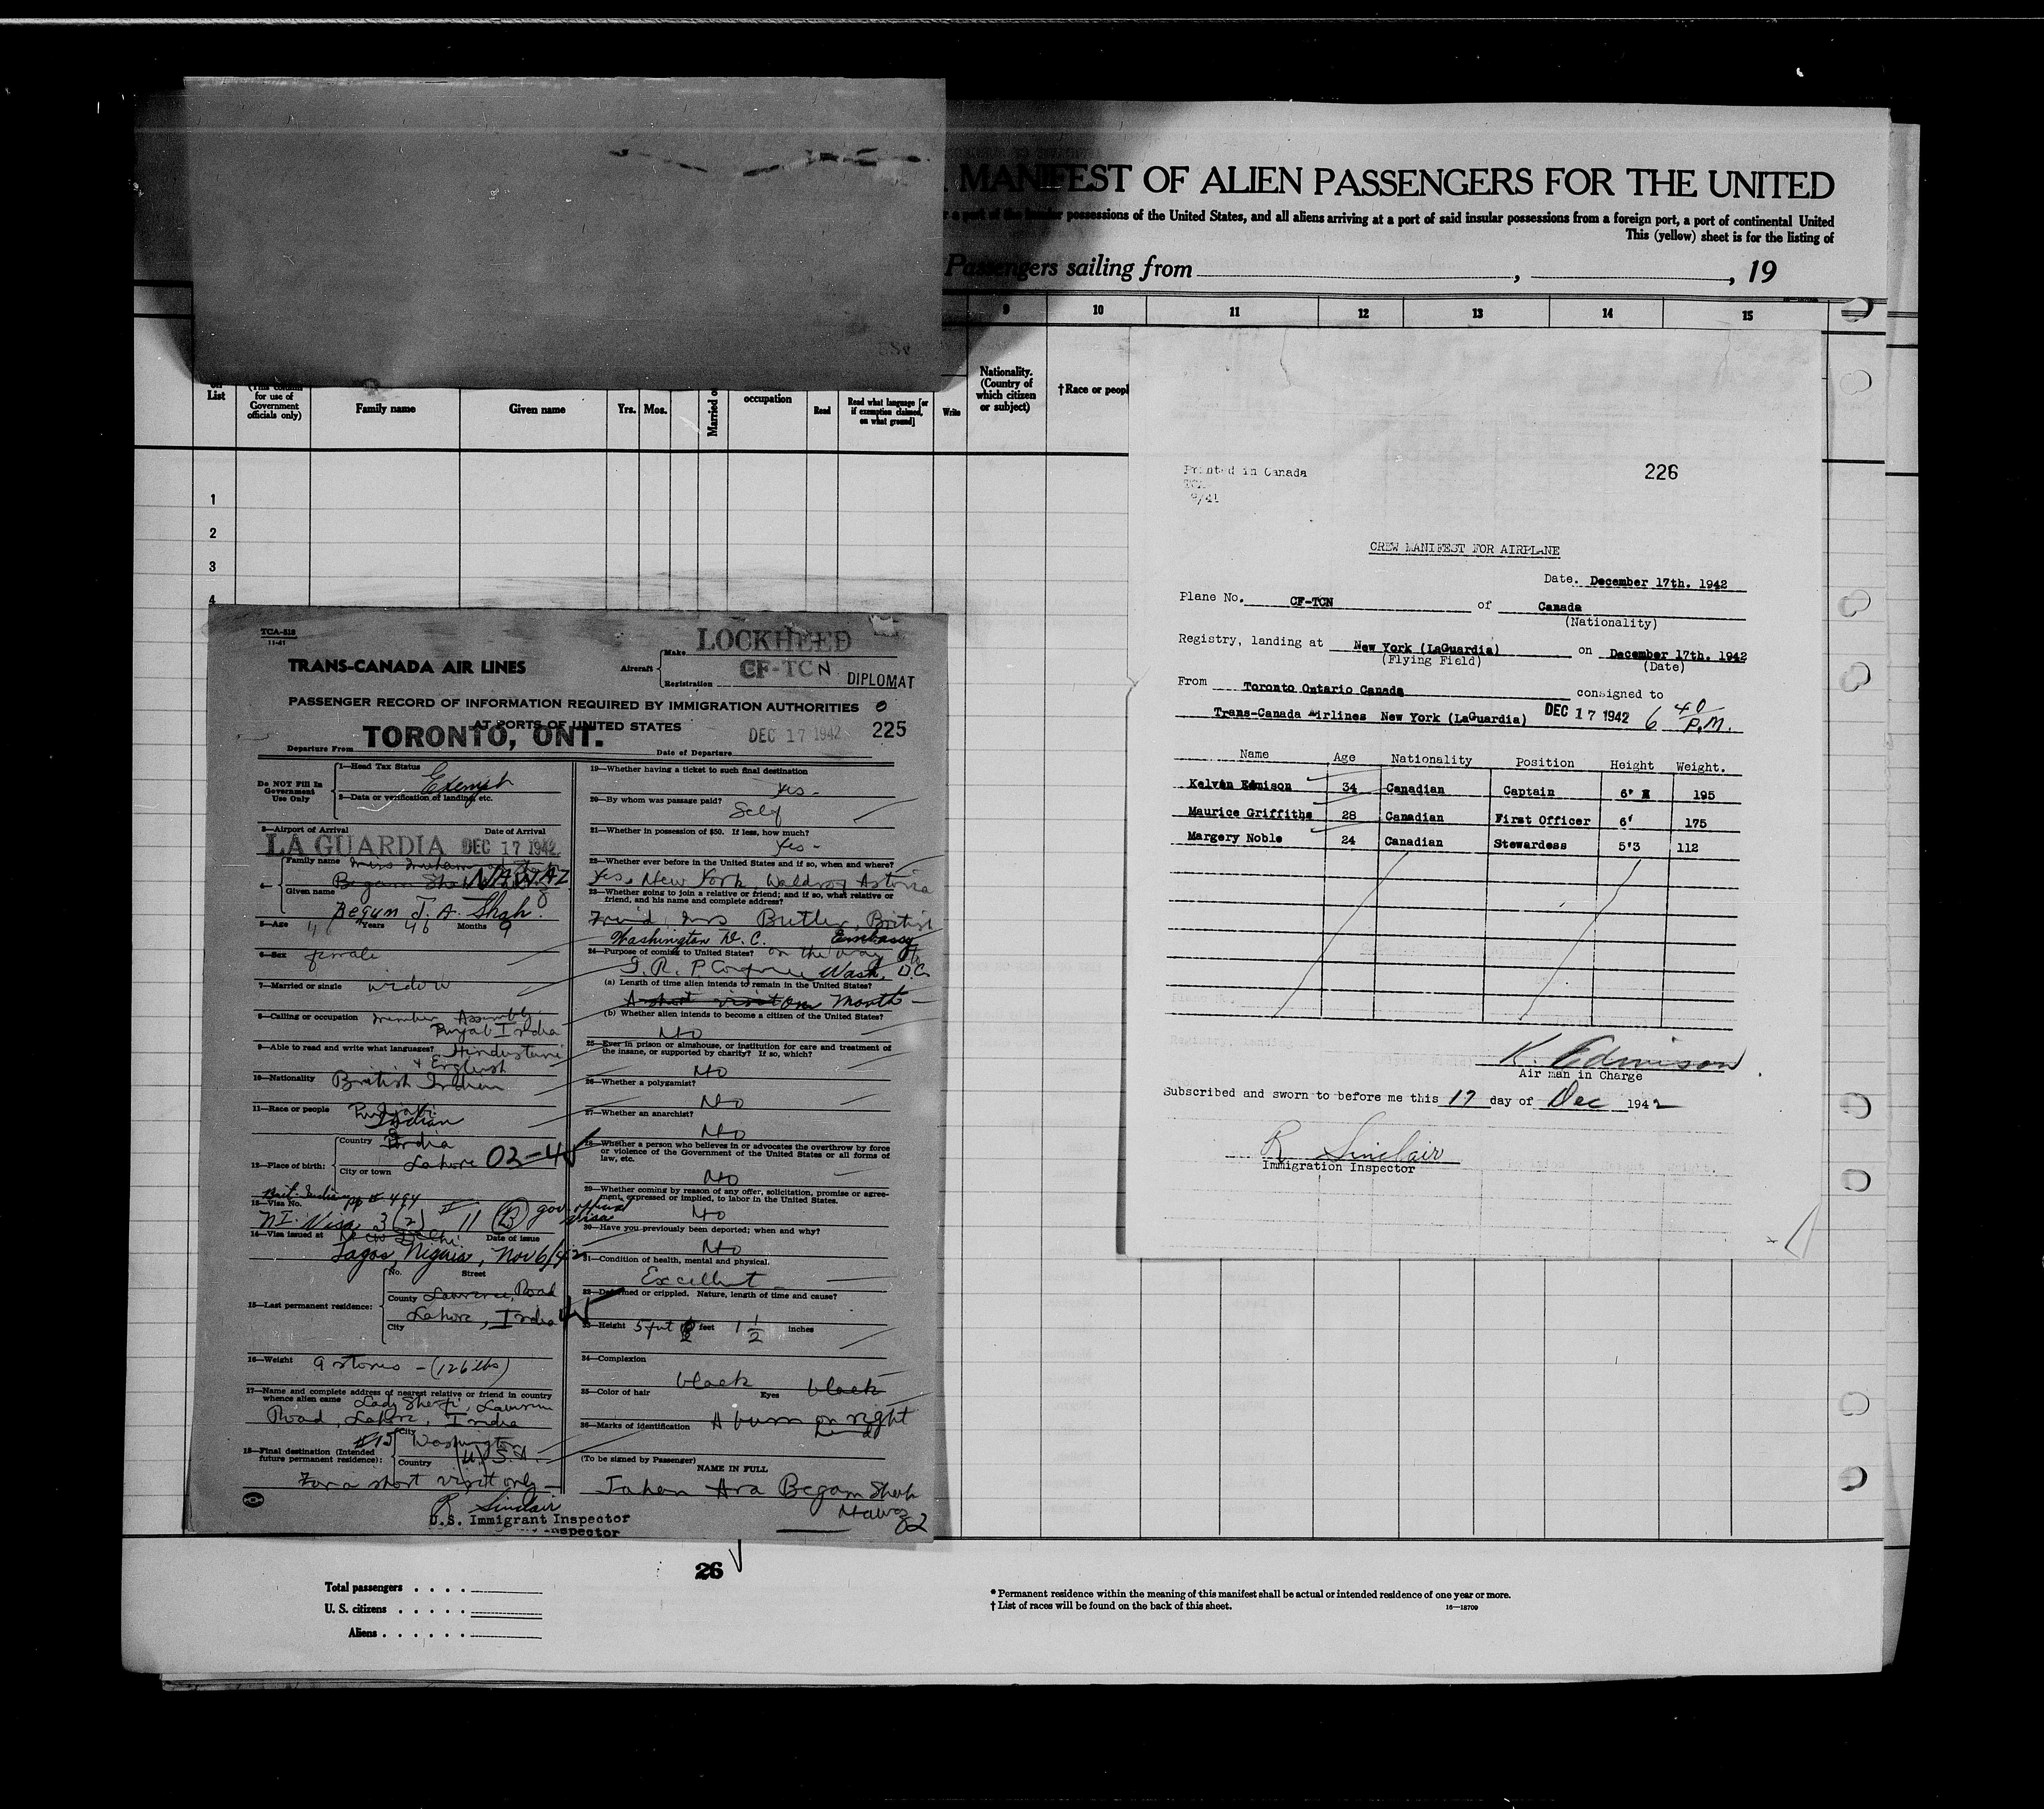 MANIFEST OF ALIEN PASSENGERS FOR THE UNITED
possessions of the United States, and all aliens arriving at a port of said insular possessions from a foreign port, a port of continental United
This (yellow) sheet is for the listing of
Passengers sailing from , , 19
9 10 11 12 13 14 15
on List
(This column for use of Government officials only)
Family name
Given name
Yrs. Mos.
Married or
occupation
Read
Read what language [or if exemption claimed, on what ground]
Write
Nationality. (Country of which citizen or subject)
†Race or peopl
1
2
3
4
TCA-518
11-41
TRANS-CANADA AIR LINES
Aircraft
Make LOCKHEED
Registration CF-TCN
DIPLOMAT
PASSENGER RECORD OF INFORMATION REQUIRED BY IMMIGRATION AUTHORITIES
AT PORTS OF UNITED STATES
225
Departure From TORONTO, ONT. Date of Departure DEC 17 1942
Do NOT Fill In Government Use Only
1—Head Tax Status Exempt
2—Data or verification of landing, etc.
3—Airport of Arrival Date of Arrival
LA GUARDIA DEC 17 1942
4—
Family name NAWAZ
Given name
Begum J. A. Shah
5—Age 46 Years Months 9
6—Sex female
7—Married or single widow
8—Calling or occupation member Assembly
Punjab India
9—Able to read and write what languages? Hindustani
+ English
10—Nationality British Indian
11—Race or people Punjabi
Indian
12—Place of birth:
Country India
City or town Lahore 03-4
Brit. Indian pp # 494
13—Visa No.
NI. Visa 3(2) 11 (B) gov. official visa
14—Visa issued at New Delhi. Date of issue
Lagos, Nigeria, Nov 6/42
15—Last permanent residence:
No. Street
County Lawrence Road
Lahore, India
City
16—Weight 9 stones - (126 lbs)
17—Name and complete address of nearest relative or friend in country
whence alien came Lady Shafi, Lawrence
Road, Lahore, India
#15
18—Final destination (Intended future permanent residence):
City Washington
Country U.S.A.
For a short visit only
R Sinclair
U.S. Immigrant Inspector
Inspector
19—Whether having a ticket to such final destination
Yes -
20—By whom was passage paid?
Self
21—Whether in possession of $50. If less, how much?
Yes -
22—Whether ever before in the United States and if so, when and where?
Yes. New York, Waldrof Astoria
23—Whether going to join a relative or friend; and if so, what relative or
friend, and his name and complete address?
Friend, Mrs Butler, British
Washington D. C. Embassy
24—Purpose of coming to United States? on the way to
I. R. P. Conference Wash. D.C.
(a) Length of time alien intends to remain in the United States?
A short visit One Month -
(b) Whether alien intends to become a citizen of the United States?
No
25—Ever in prison or almshouse, or institution for care and treatment of
the insane, or supported by charity? If so, which?
No
26—Whether a polygamist?
No
27—Whether an anarchist?
No
28—Whether a person who believes in or advocates the overthrow by force
or violence of the Government of the United States or all forms of
law, etc.
No
29—Whether coming by reason of any offer, solicitation, promise or agree-
ment, expressed or implied, to labor in the United States.
No
30—Have you previously been deported; when and why?
No
31—Condition of health, mental and physical.
Excellent
32—Deformed or crippled. Nature, length of time and cause?
33—Height 5 feet 1 1/2 inches
34—Complexion
35—Color of hair black Eyes black
36—Marks of identification A burn on right
hand
(To be signed by Passenger)
NAME IN FULL
Jahan Ara Begam Shah
Nawaz
82
Printed in Canada
TCA
9/41
226
CREW MANIFEST FOR AIRPLANE
Date. December 17th. 1942
Plane No. CF-TCN of Canada
(Nationality)
Registry, landing at New York (LaGuardia) on December 17th. 1942
(Flying Field) (Date)
From Toronto Ontario Canada consigned to
Trans-Canada Airlines New York (LaGuardia) DEC 17 1942 6 40 P.M.
Name Age Nationality Position Height Weight.
Kelvin Edmison 34 Canadian Captain 6' 195
Maurice Griffiths 28 Canadian First Officer 6' 175
Margery Noble 24 Canadian Stewardess 5'3 112
K. Edmison
Air man in Charge
Subscribed and sworn to before me this 17 day of Dec 1942
R Sinclair
Immigration Inspector
26
Total passengers . . . .
U. S. citizens . . . . .
Aliens . . . . . .
* Permanent residence within the meaning of this manifest shall be actual or intended residence of one year or more.
† List of races will be found on the back of this sheet.
16—18700